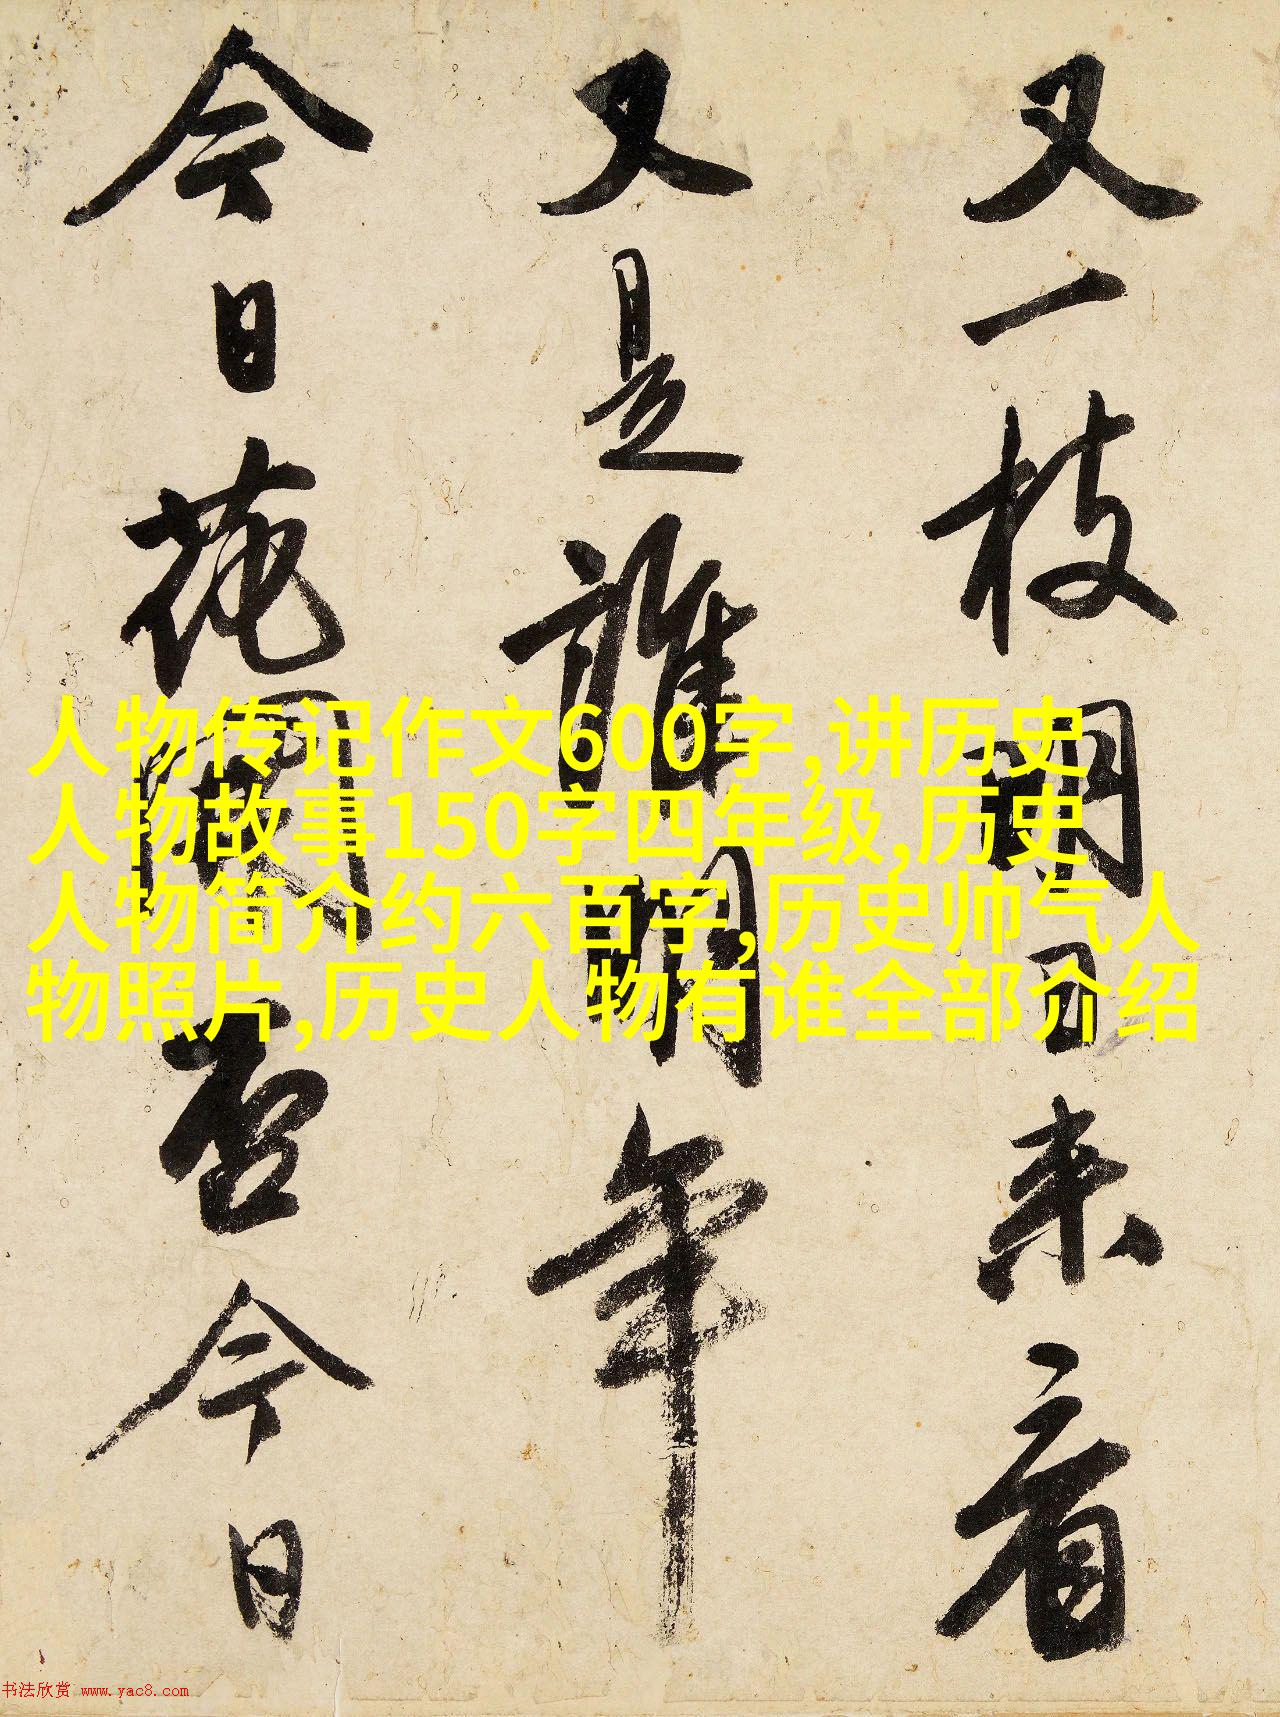 又一枝明日来看
又是誰明年
今日花開否今日
人物传记作文600字,讲历史
人物故事150字四年级,历史
人物简介约六百字,历史帅气人
物照片,历史人物有谁全部介绍
书法欣赏 www.yac8.com